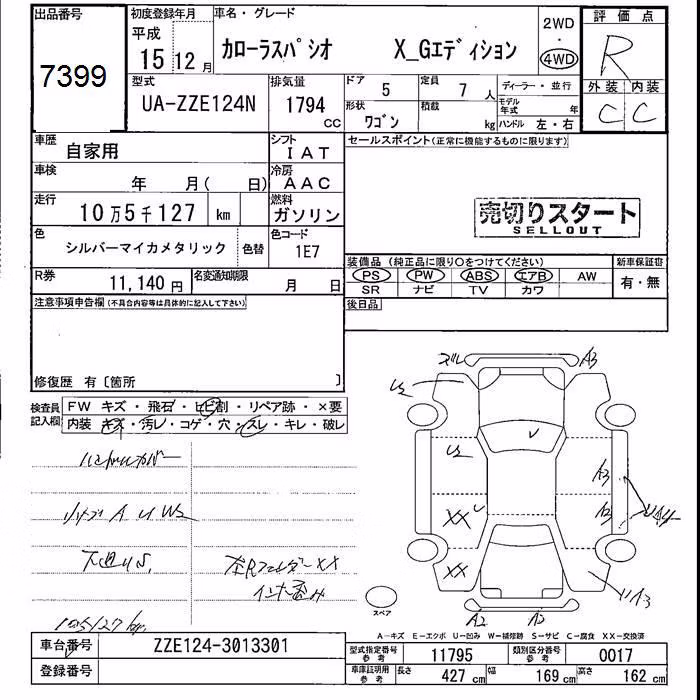 出品番号
7399
初度登録年月
平成
15 12 月
車名・グレード
カローラスパシオ X_Gエディション
2WD
・
4WD
評価点
R
外装 内装
C C
型式
UA-ZZE124N
排気量
1794
CC
ドア
5
定員
7 人
形状
ワゴン
積載
kg
ディーラー・並行
モデル年式 年
ハンドル 左・右
車歴
自家用
シフト
IAT
車検
年 月( 日)
冷房
AAC
走行
10万5千127 km
燃料
ガソリン
色
シルバーマイカメタリック
色替
色コード
1E7
R券
11,140 円
名変通知期限
月 日
セールスポイント(正常に機能するものに限ります)
売切りスタート
SELLOUT
装備品(純正品に限り○をつけてください)
新車保証書
PS PW ABS エアB AW
有・無
SR ナビ TV カワ
後日品
注意事項申告欄(不具合内容等は具体的に記入して下さい)
修復歴 有〔箇所 〕
検査員
記入欄
FW キズ・飛石・ヒビ割・リペア跡・×要
内装 キズ・汚レ・コゲ・穴・スレ・キレ・破レ
ズレ
A3
U2
U2
A3
XX
A2
XX
A3
A2
スペア
リヤゲA U W2
下廻りS,
左Rフェンダー XX
105127 km
A-キズ E-エクボ U-凹み W-補修跡 S-サビ C-腐食 XX-交換済
車台番号
ZZE124-3013301
登録番号
型式指定番号
参考
11795
類別区分番号
参考
0017
車庫証明用
参考
長さ
427 cm
幅
169 cm
高さ
162 cm